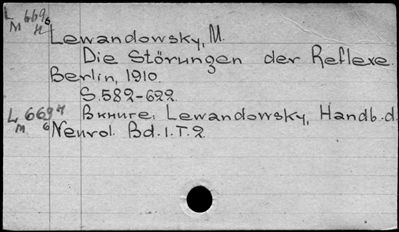 L 669 6
M н
Lewandowsky, M.
Die Störungen der Reflexe.
Berlin, 1910.
S. 582-622
L 669 н В книге: Lewandowsky, Handb. d.
M 6 Neurol. Bd. 1. T. 2